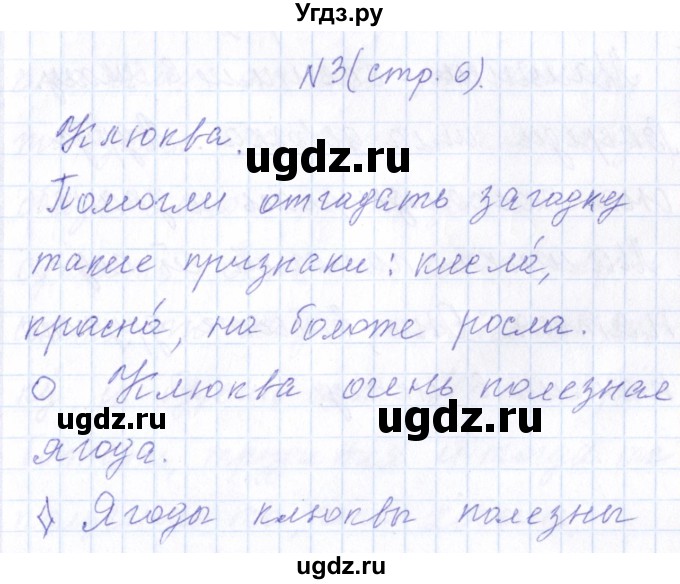 Угдз.ру
№3 (стр. 6).
Клюква.
ugdz.ru
Помогли отгадать загадку
такие признаки: кисла́,
красна́, на болоте росла.
О Клюква очень полезная
ugdz.ru
ugdz.ru
ягода.
◊ Ягоды клюквы полезны
ugdz.ru